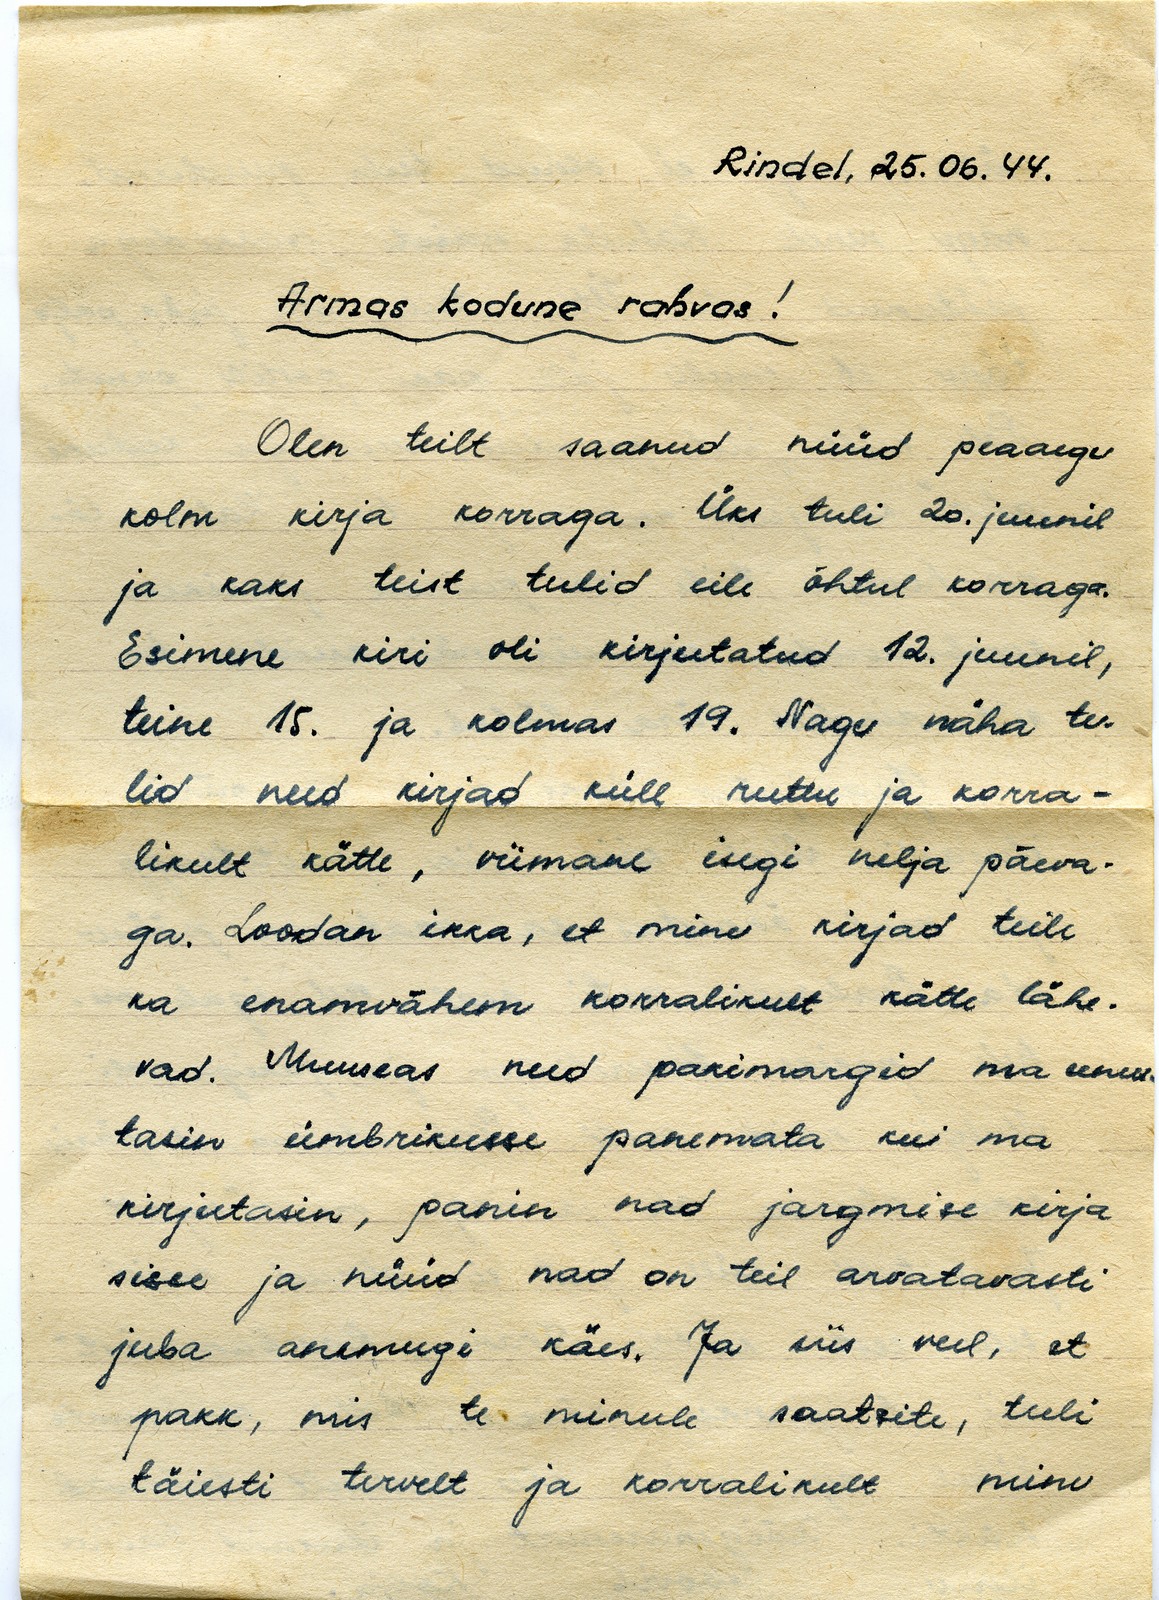 Rindel, 25.06.44.
Armas kodune rahvas!
Olen teilt saanud nüüd peaaegu
kolm kirja korraga. Üks tuli 20. juunil
ja kaks teist tulid eile õhtul korraga.
Esimene kiri oli kirjutatud 12. juunil,
teine 15. ja kolmas 19. Nagu näha tu-
lid need kirjad küll ruttu ja korra-
likult kätte, viimane isegi nelja päeva-
ga. Loodan ikka, et minu kirjad teile
ka enamvähem korralikult kätte lähe-
vad. Muuseas need pakimargid ma unus-
tasin ümbrikusse panemata kui ma
kirjutasin, panin nad jargmise kirja
sisse ja nüüd nad on teil arvatavasti
juba anemugi käes. Ja siis veel, et
pakk, mis te minule saatsite, tuli
täiesti tervelt ja korralikult minu